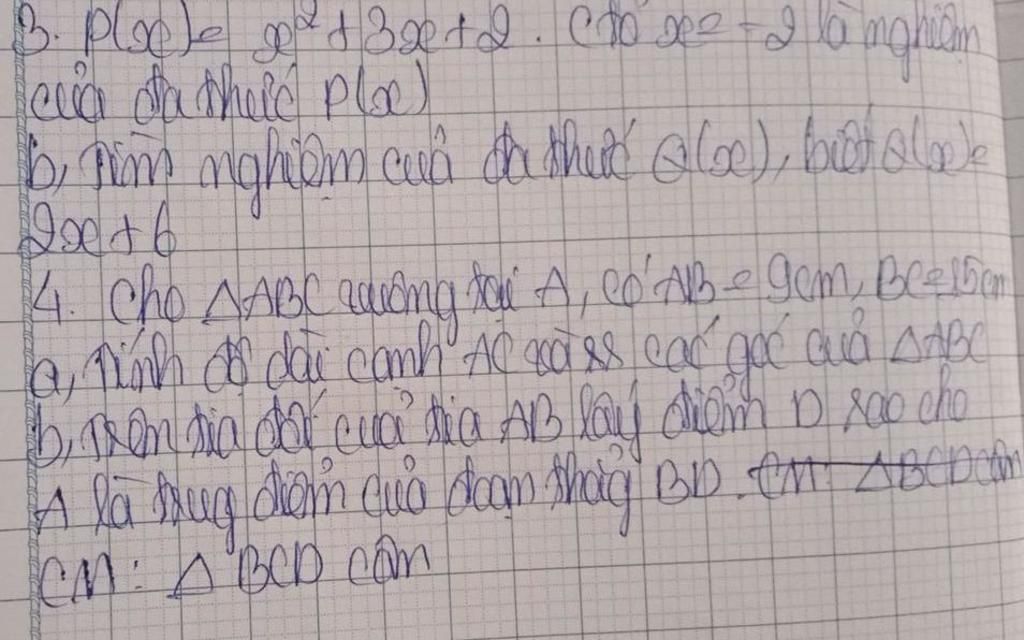 3. P(x) = x² + 3x + 2. C/tỏ x = -2 là nghiệm
của đa thức P(x)
b, Tìm nghiệm của đa thức Q(x), biết Q(x) =
2x + 6
4. Cho △ABC vuông tại A, có AB = 9cm, BC = 15cm
a, Tính độ dài cạnh AC và ss các góc của △ABC
b, Trên tia đối của tia AB lấy điểm D sao cho
A là trung điểm của đoạn thẳng BD. CM △BCD cân
CM: △BCD cân